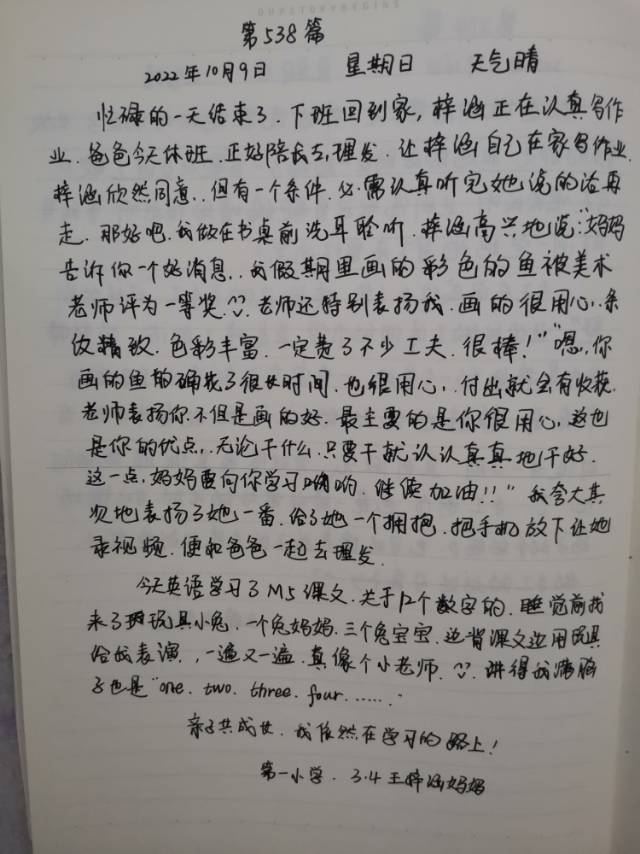 第538篇
2022年10月9日 星期日 天气晴
忙碌的一天结束了.下班回到家,梓涵正在认真写作
业.爸爸今天休班.正好陪我去理发.让梓涵自己在家写作业.
梓涵欣然同意.但有一个条件.必需认真听完她说的话再
走.那好吧.我做在书桌前洗耳聆听.梓涵高兴地说:"妈妈
告诉你一个好消息.我假期里画的彩色的鱼被美术
老师评为一等奖.老师还特别表扬我.画的很用心.条
纹精致.色彩丰富.一定费了不少工夫.很棒!""嗯,你
画的鱼的确花了很长时间.也很用心,付出就会有收获.
老师表扬你不但是画的好.最主要的是你很用心,这也
是你的优点,无论干什么.只要干就认认真真地干好.
这一点,妈妈要向你学习哟哟.继续加油!!"我夸大其
词地表扬了她一番.给了她一个拥抱.把手机放下让她
录视频.便和爸爸一起去理发.
今天英语学习了M5课文.关于12个数字的.睡觉前找
来了玩具小兔.一个兔妈妈.三个兔宝宝.边背课文边用玩具
给我表演,一遍又一遍.真像个小老师.讲得我满脑
子也是"one. two. three. four. ......"
亲子共成长.我依然在学习的路上!
第一小学.3.4王梓涵妈妈